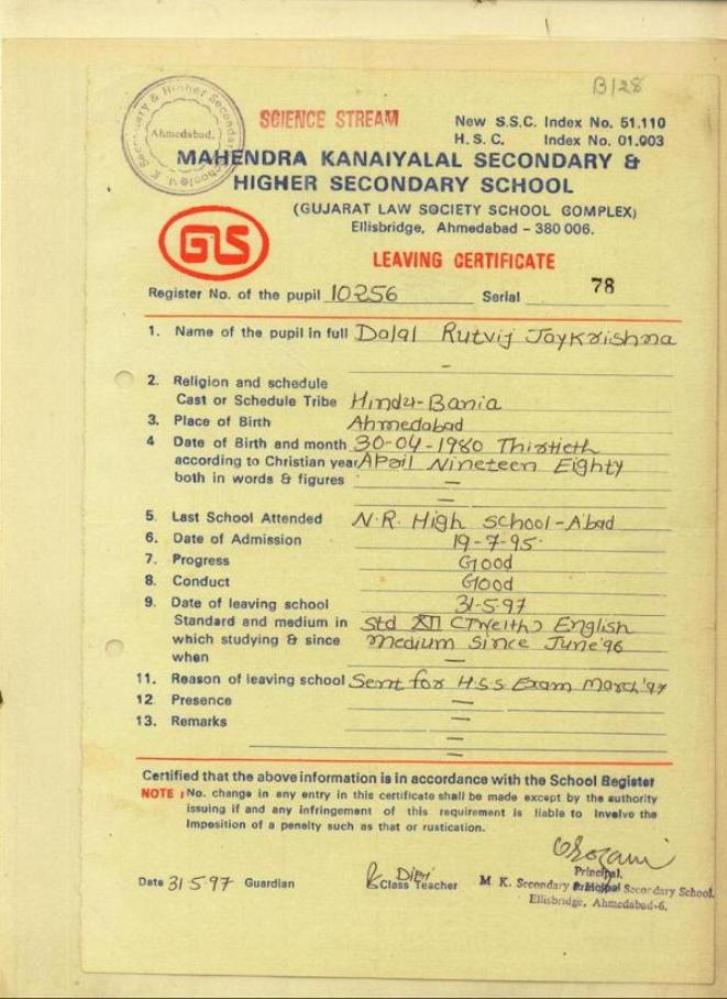 B/28
SCIENCE STREAM
New S.S.C. Index No. 51.110
H. S. C. Index No. 01.003
Ahmedabad.
MAHENDRA KANAIYALAL SECONDARY &
HIGHER SECONDARY SCHOOL
(GUJARAT LAW SOCIETY SCHOOL COMPLEX)
Ellisbridge, Ahmedabad - 380 006.
GLS
LEAVING CERTIFICATE
Register No. of the pupil 10256 Serial 78
1. Name of the pupil in full Dalal Rutvij Jaykrishna
2. Religion and schedule
Cast or Schedule Tribe Hindu-Bania
3. Place of Birth Ahmedabad
4 Date of Birth and month 30-04-1980 Thirtieth
according to Christian year April Nineteen Eighty
both in words & figures
5. Last School Attended N.R. High School-A'bad
6. Date of Admission 19-7-95
7. Progress Good
8. Conduct Good
9. Date of leaving school 31-5-97
Standard and medium in Std XII (Twelth) English
which studying & since medium Since June'96
when
11. Reason of leaving school Sent for H.S.S Exam March'97
12 Presence
13. Remarks
Certified that the above information is in accordance with the School Register
NOTE : No. change in any entry in this certificate shall be made except by the authority
issuing if and any infringement of this requirement is liable to involve the
Imposition of a penalty such as that or rustication.
Date 31-5-97 Guardian Class Teacher
Principal.
M. K. Secondary Secondary School.
Principal
Ellisbridge, Ahmedabad-6.